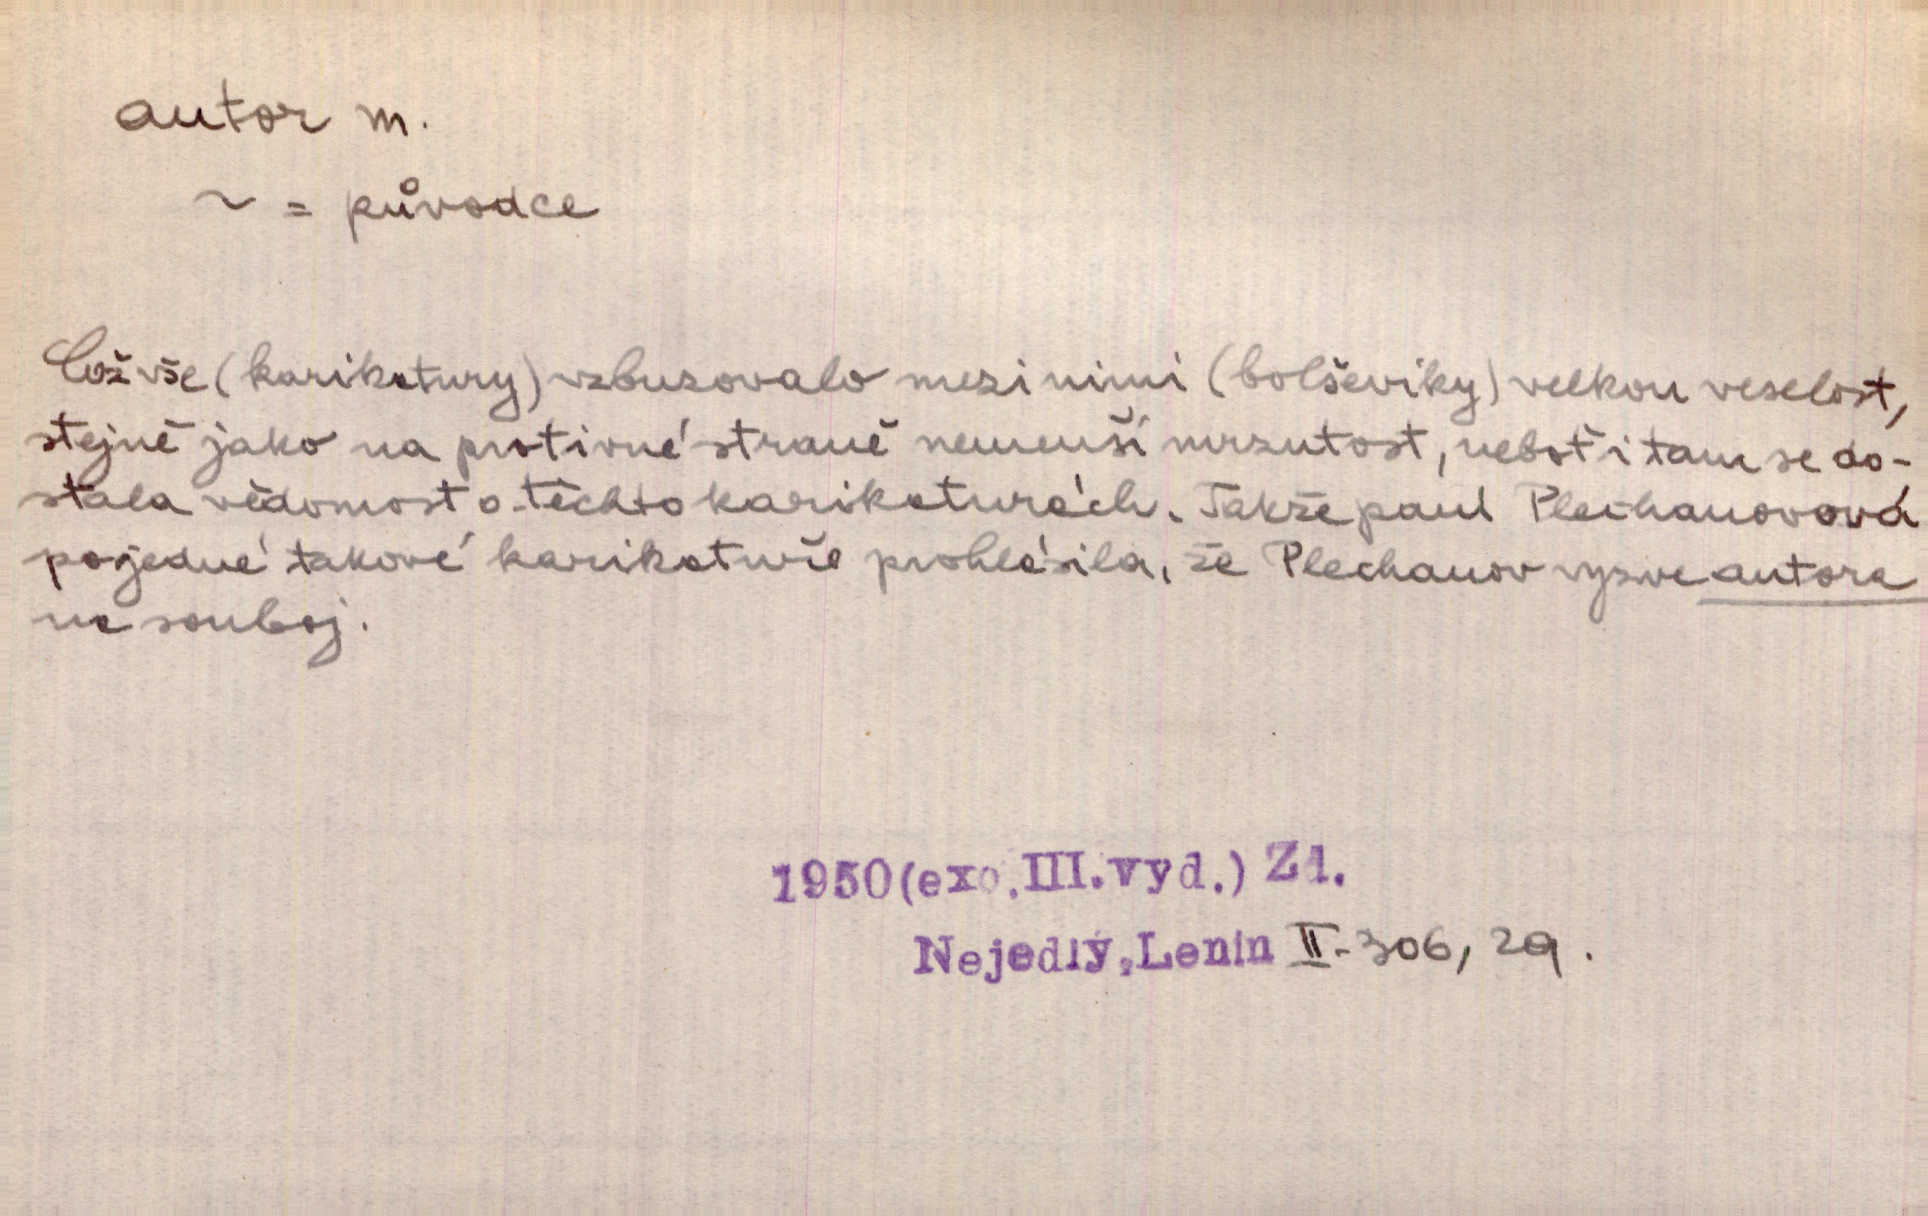 autor m.
~ = původce
Což vše (karikatury) vzbuzovalo mezi nimi (bolševiky) velkou veselost,
stejně jako na protivné straně nemenší mrzutost, neboť i tam se do-
stala vědomost o těchto karikaturách. Takže paní Plechanovová
po jedné takové karikatuře prohlásila, že Plechanov vyzve autora
na souboj.
1950(exc.III.vyd.) Zd.
Nejedlý,Lenin II-306, 29.